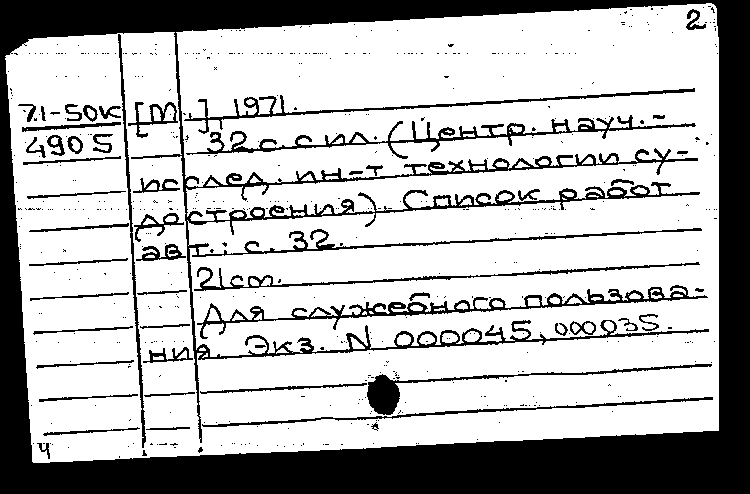 2
71-50к [М.], 1971.
4905 32 с. с ил. (Центр. науч.-
исслед. ин-т технологии су-
достроения). Список работ
авт.: с. 32.
21 cm.
Для служебного пользова-
ния. Экз. N 000045, 000035.
ч